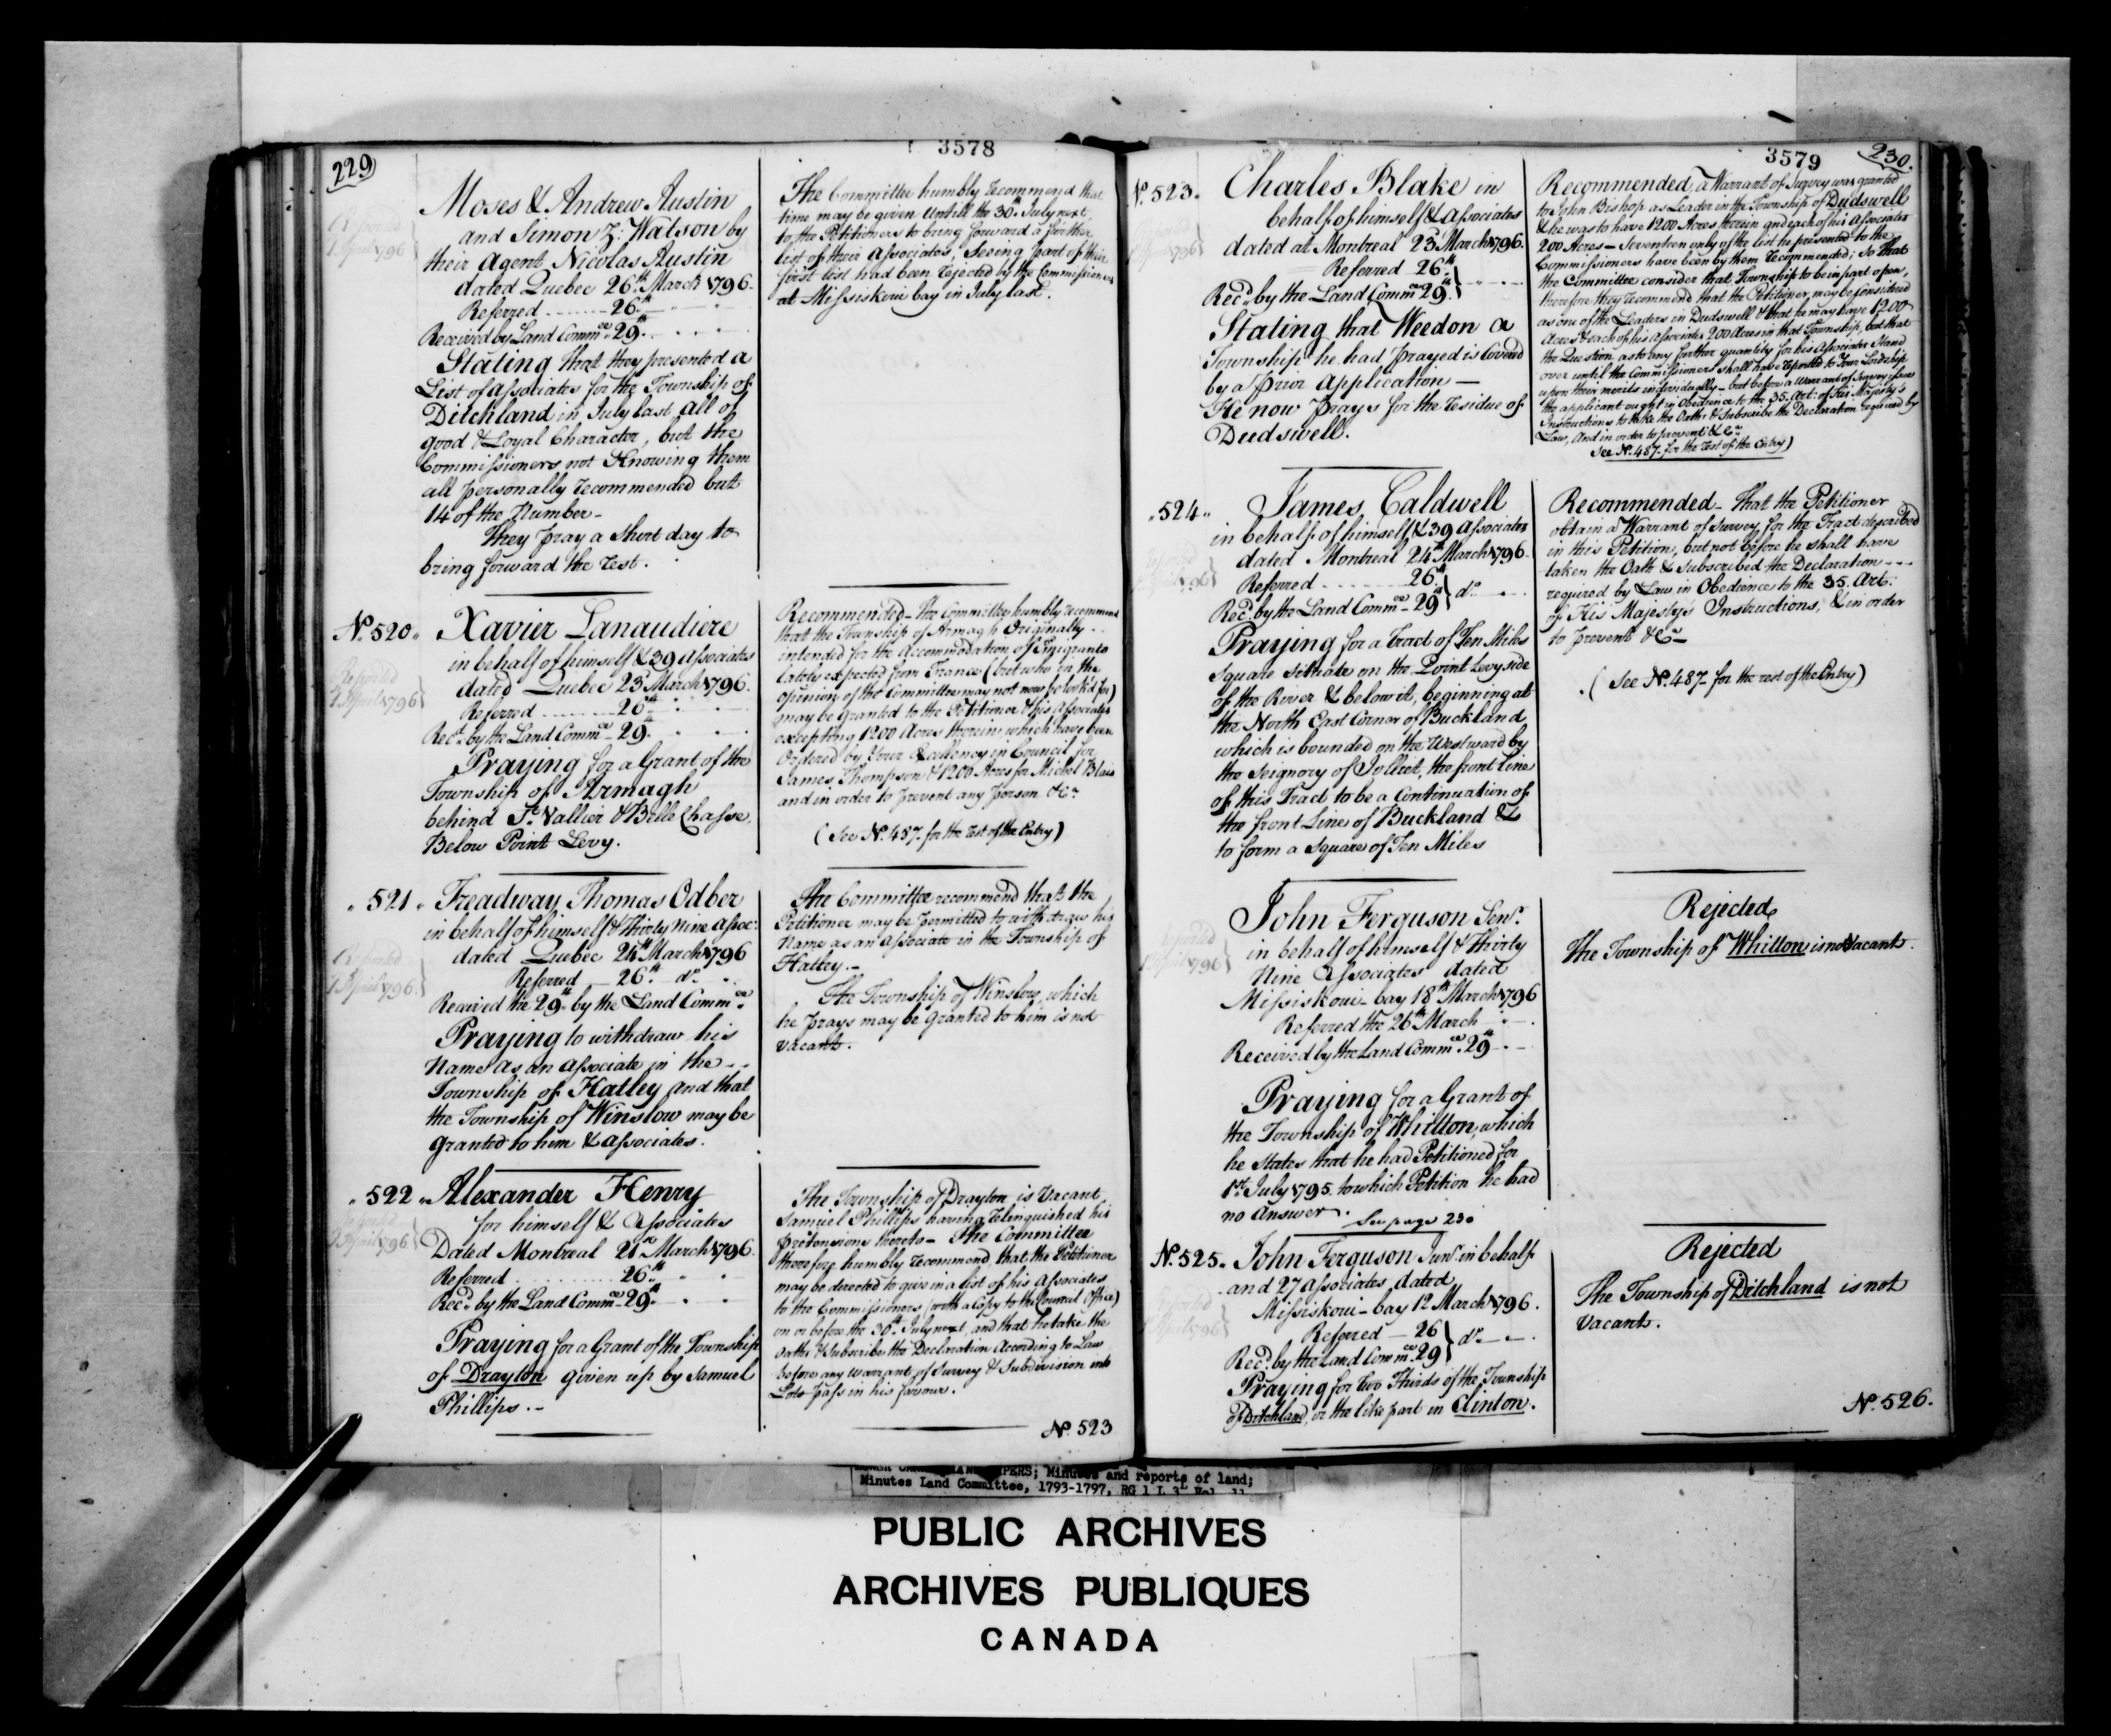 229
3578
Reported
1 April 1796
Moses & Andrew Austin
and Simon Z: Watson by
their Agent Nicolas Austin
dated Quebec 26th March 1796.
Referred 26th
Received by Land Commee 29th
Stating that they presented a
List of Associates for the Township of
Ditchland in July last all of
good & Loyal Character, but the
Commissioners not Knowing them
all personally recommended but
14 of the Number –
They pray a short day to
bring forward the rest.
The Committee humbly recommend that
time may be given untill the 30th July next,
to the Petitioners to bring forward a further
list of their Associates, Seeing part of their
first list had been rejected by the Commissioners
at Missiskoui bay in July last.
No. 520.
Reported
1 April 1796
Xavier Lanaudiere
in behalf of himself & 39 Associates
dated Quebec 23 March 1796.
Referred 26th
Recd. by the Land Commee 29.
Praying for a Grant of the
Township of Armagh
behind St. Vallier & Belle Chasse,
Below Point Levy.
Recommended – The Committee humbly recommend
that the Township of Armagh Originally
intended for the Accommodation of Emigrants
lately expected from France (but who in the
opinion of the Committee may not now be look'd for)
may be granted to the Petitioner & his Associates
excepting 1200 Acres therein which have been
Ordered by Your Excellency in Council for
James Thompson & 1200 Acres for Michel Blais
and in order to prevent any person &ca
(See No. 487. for the rest of the Entry)
521
Reported
1 April 1796
Treadway Thomas Odber
in behalf of himself & Thirty Nine Assoc:
dated Quebec 24th March 1796
Referred – 26th do
Received the 29th by the Land Commee
Praying to withdraw his
Name as an Associate in the
Township of Hatley and that
the Township of Winslow may be
granted to him & Associates.
The Committee recommend that the
Petitioner may be permitted to withdraw his
Name as an Associate in the Township of
Hatley. –
The Township of Winslow, which
he prays may be granted to him is not
vacant.
522
Reported
1 April 1796
Alexander Henry
for himself & Associates
Dated Montreal 21st March 1796.
Referred 26th
Recd. by the Land Commee 29th
Praying for a Grant of the Township
of Drayton given up by Samuel
Phillips. –
The Township of Drayton is Vacant,
Samuel Phillips having relinquished his
pretensions thereto – The Committee
therefore humbly recommend, that the Petitioner
may be directed to give in a list of his Associates
to the Commissioners (with a Copy to the Council Office)
on or before the 30th July next, and that he take the
Oaths & Subscribe the Declaration According to Law
before any Warrant of Survey & Subdivision into
Lots pass in his favour.
No. 523
3579
230.
No. 523.
1796
Charles Blake in
behalf of himself & Associates
dated at Montreal 23 March 1796.
Referred 26th
Recd. by the Land Commee 29th
Stating that Weedon a
Township he had prayed is Covered
by a prior Application –
He now prays for the residue of
Dudswell.
Recommended, a Warrant of Survey was granted
to John Bishop as Leader in the Township of Dudswell
& he was to have 1200 Acres therein and each of his Associates
200 Acres – Seventeen only of the list he presented to the
Commissioners have been by them recommended; So that
the Committee consider that Township to be in part open,
therefore they recommend that the Petitioner may be Considered
as one of the Leaders in Dudswell & that he may have 1200
Acres & each of his Associates 200 Acres in that Township, but that
the Question as to any further quantity for his Associates Stand
over until the Commissioners shall have reported to Your Lordship
upon their merits individually – but before a Warrant of Survey issue
the applicant ought in Obedience to the 35. Art: of His Majesty's
Instructions to take the Oaths & Subscribe the Declaration required by
Law, And in order to prevent &ca
See No. 487. for the rest of the Entry)
524
James Caldwell
in behalf of himself & 39 Associates
dated Montreal 24th March 1796.
Referred 26th
Recd. by the Land Commee 29th do
Praying for a Tract of Ten Miles
Square situate on the Point Levy side
of the River & below it, beginning at
the North East Corner of Buckland
which is bounded on the Westward by
the Seignory of Jolliet, the front Line
of this Tract to be a Continuation of
the front Line of Buckland &
to form a Square of Ten Miles
Recommended – That the Petitioner
obtain a Warrant of Survey for the Tract described
in this Petition, but not before he shall have
taken the Oath & Subscribed the Declaration
required by Law in Obedience to the 35. Art:
of His Majestys Instructions, & in order
to prevent &ca –
(See No. 487. for the rest of the Entry)
Reported
1 April 1796
John Ferguson Senr.
in behalf of himself & Thirty
Nine Associates dated
Missiskoui – bay 18th March 1796
Referred the 26th March
Received by the Land Commee 29th
Praying for a Grant of
the Township of Whitton, which
he States that he had Petitioned for
1st July 1795. to which Petition he had
no Answer.
See page 230
Rejected
The Township of Whitton is not Vacant.
No. 525.
Reported
1 April 1796
John Ferguson Junr. in behalf
and 27 Associates, dated
Missiskoui – bay 12 March 1796.
Referred – 26
Recd. by the Land Commee 29 do
Praying for two Thirds of the Township
of Ditchland, or the like part in Clinton.
Rejected
The Township of Ditchland is not
Vacant.
No. 526.
PAPERS; Minutes and reports of land;
Minutes Land Committee, 1793-1797, RG 1 L 3L Vol. 11
PUBLIC ARCHIVES
ARCHIVES PUBLIQUES
CANADA